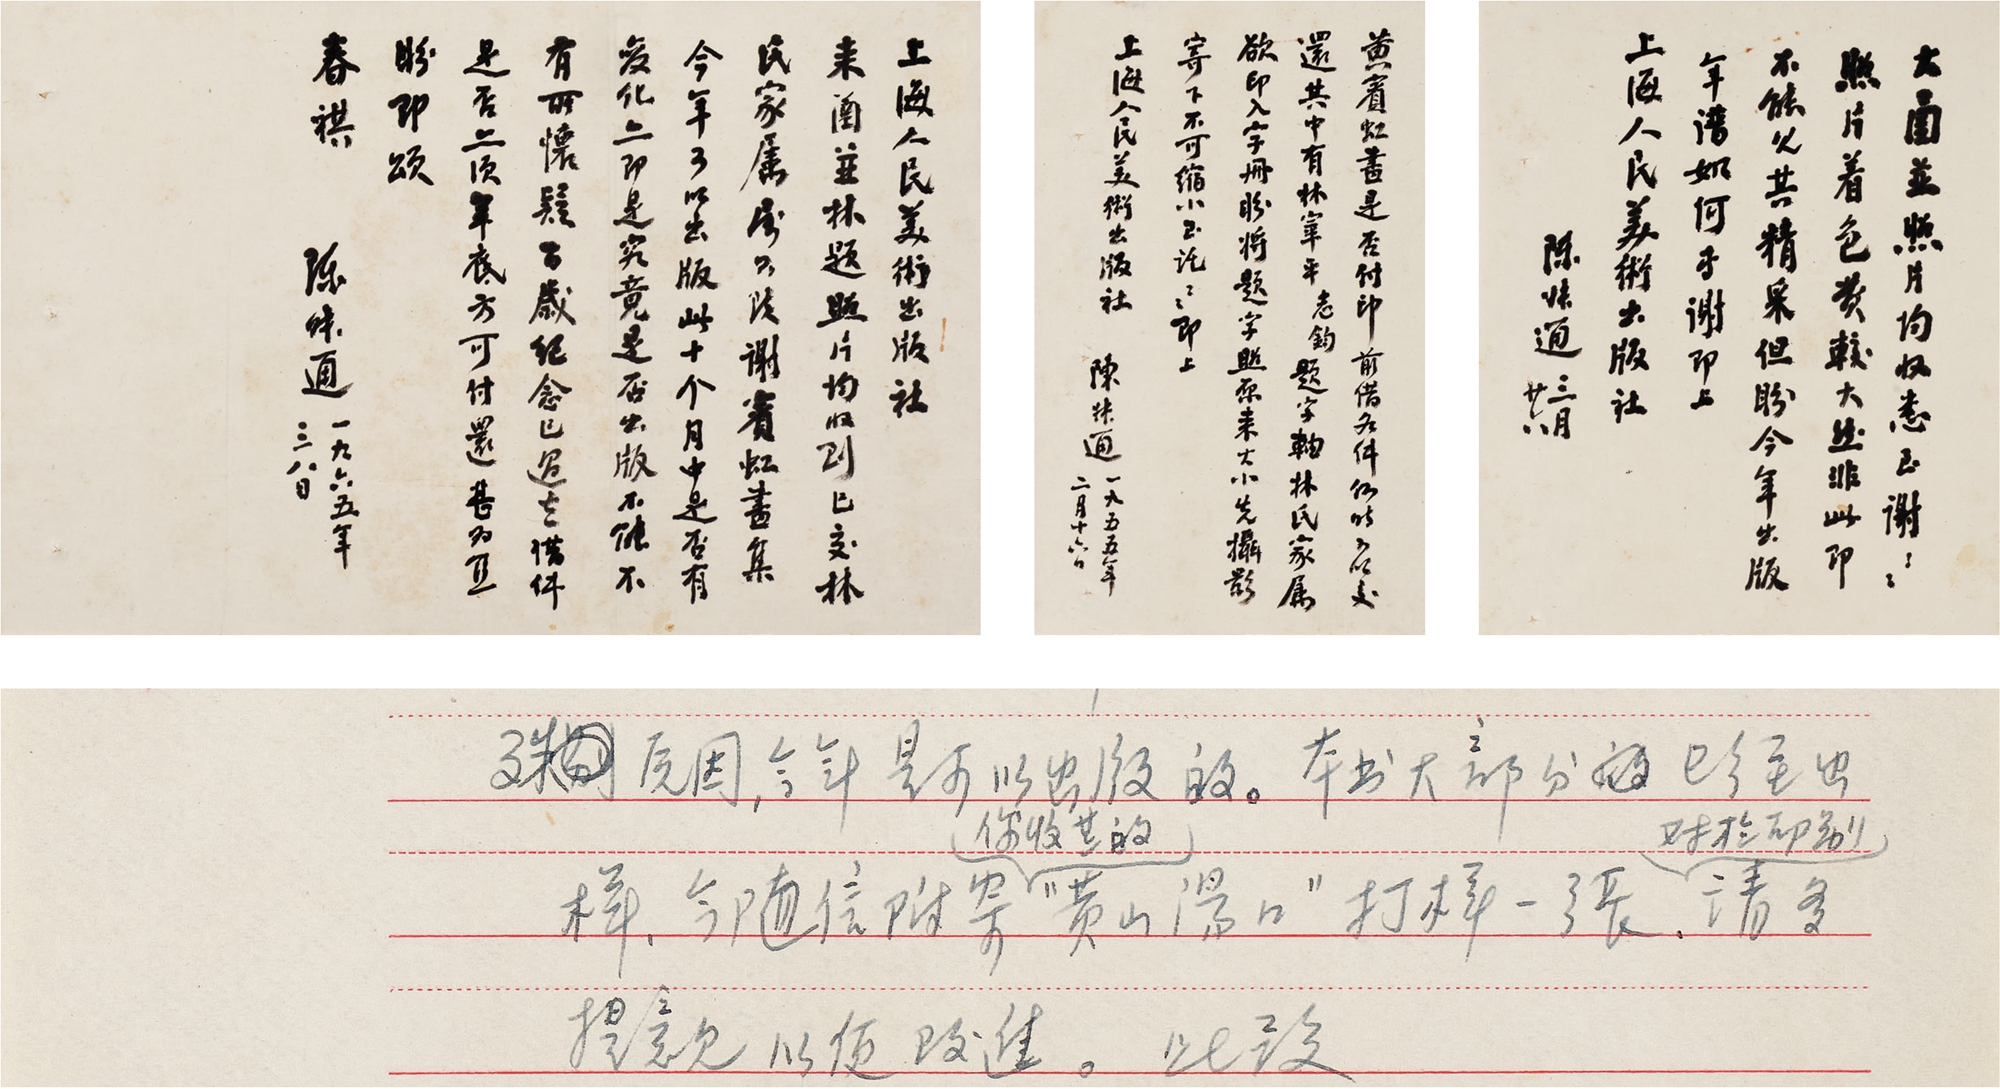 上海人民美術出版社
来函並林題照片均收到已交林
民家属嘱為陵謝賓虹畫集
今年可以出版此十个月中是否有
变化亠即是究竟是否出版不能不
有所懷疑百歲纪念已过去借件
是否亠须年底方可付還甚为正
盼即颂
春祺
陳叔通
一九六五年
三八日
黄賓虹畫是否付印前借各件何时可以交
還其中有林宰平志鈞題字軸林氏家属
欲印入字册盼将題字照原来大小先攝影
寄下不可缩小至託〻即上
上海人民美術出版社
陳叔通
一九五五年
二月十六日
大函並照片均收悉至謝〻
照片着色費較大然非此即
不能允其精采但盼今年出版
年譜如何予謝即上
上海人民美術出版社
陳叔通
三月
廿六
殊原因，今年是可以出版的。本书大部分都已经至出
你收其的
对於印刷
样，今随信附寄"黄山湯口"打样一張，请多
提意见以便改進。此致